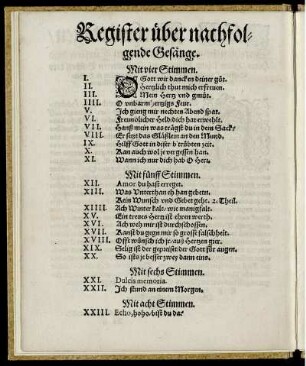 Register über nachfol-
gende Gesänge.
Mit vier Stimmen.
I. O Gott wir dancken deiner güt.
II. Hertzlich thut mich erfrewen.
III. Mein Hertz vnd gmüt.
IIII. O vnbarmhertzigs
V. Ich gieng mir nechten Abend spat.
VI. Frewndlicher Held dich hat erwehlt.
VII. Hanß mein was trägst du in dem Sack?
VIII. Er setzt das Gläßlein an den Mund.
IX. Hilff Gott in diser betrübten zeit.
X. Kan auch wol jemandt
XI. Wann ich nur dich hab O Herr.
Mit fünff Stimmen.
XII. Amor du hast erreget.
XIII. Was Vnterthan
XIV. Kein Wunsch vnd Gebet gehe. 2. Theil.
XIIII. Ach Winter kalt/ wie manigfalt.
XV. Ein trewes Hertz ist ehren werth.
XVI. Ach weh mir ist durchschossen.
XVII. Kanst du gegn mir so grosse falschheit.
XVIII. Offt wünsch ich jr auß hertzen gier.
XIX. Selig ist der gepreiset der Gott für augen.
XX. So ists je besser zwey dann eins.
Mit sechs Stimmen.
XXI. Dulcis memoria.
XXII. Ich stund an einem Morgen.
Mit acht Stimmen.
XXIII. Echo/hoho/bist du da?